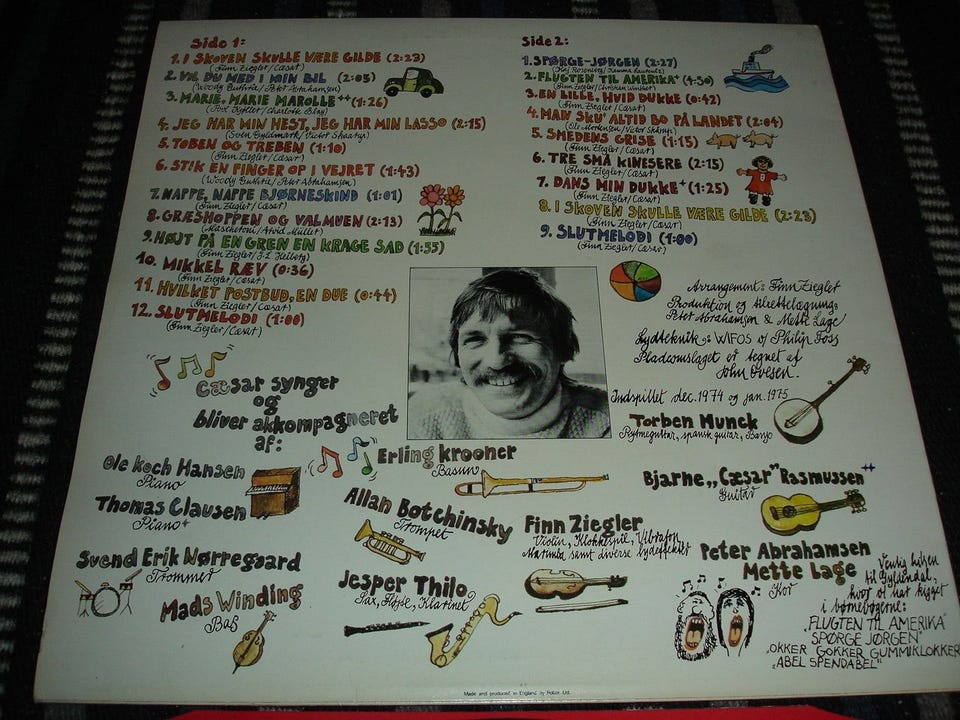 Side 1:
1. I SKOVEN SKULLE VÆRE GILDE (2:23)
(Finn Ziegler/Cæsar)
2. VIL DU MED I MIN BIL (2:05)
(Woody Guthrie/Peter Abrahamsen)
3. MARIE, MARIE MAROLLE++ (1:26)
4. JEG HAR MIN HEST, JEG HAR MIN LASSO (2:15)
(Sven Gyldmark/Victor Skaarup)
5. TOBEN OG TREBEN (1:10)
(Finn Ziegler/Cæsar)
6. STIK EN FINGER OP I VEJRET (1:43)
(Woody Guthrie/Peter Abrahamsen)
7. NAPPE, NAPPE BJØRNESKIND (1:01)
(Finn Ziegler/Cæsar)
8. GRÆSHOPPEN OG VALMUEN (2:13)
(Mascheroni/Arvid Müller)
9. HØJT PÅ EN GREN EN KRAGE SAD (1:55)
(Finn Ziegler/J.L. Heiberg)
10. MIKKEL RÆV (0:36)
(Finn Ziegler/Cæsar)
11. HVILKET POSTBUD, EN DUE (0:44)
(Finn Ziegler/Cæsar)
12. SLUTMELODI (1:00)
(Finn Ziegler/Cæsar)
Side 2:
1. SPØRGE-JØRGEN (2:27)
2. FLUGTEN TIL AMERIKA+ (4:50)
(Finn Ziegler/Christian Winther)
3. EN LILLE, HVID DUKKE (0:42)
(Finn Ziegler/Cæsar)
4. MAN SKU' ALTID BO PÅ LANDET (2:04)
(Ole Mortensen/Victor Skaarup)
5. SMEDENS GRISE (1:15)
(Finn Ziegler/Cæsar)
6. TRE SMÅ KINESERE (2:15)
(Finn Ziegler/Cæsar)
7. DANS MIN DUKKE+ (1:25)
(Finn Ziegler/Cæsar)
8. I SKOVEN SKULLE VÆRE GILDE (2:23)
(Finn Ziegler/Cæsar)
9. SLUTMELODI (1:00)
(Finn Ziegler/Cæsar)
Arrangement: Finn Ziegler
Produktion og tilrettelægning:
Peter Abrahamsen & Mette Lage
Lydteknik: WIFOS og Philip Foss
Pladeomslaget er tegnet af
John Ovesen.
Indspillet dec. 1974 og jan. 1975
Cæsar synger
og
bliver akkompagneret
af:
Ole Koch Hansen
Piano
Thomas Clausen
Piano+
Svend Erik Nørregaard
Trommer
Mads Winding
Bas
Erling Krooner
Basun
Allan Botchinsky
Trompet
Jesper Thilo
Sax, Fløjte, Klarinet
Finn Ziegler
Violin, Klokkespil, Vibrafon,
Marimba samt diverse lydeffekter
Torben Munck
Rytmeguitar, spansk guitar, Banjo
Bjarne „Cæsar" Rasmussen++
Guitar
Peter Abrahamsen
Mette Lage
Kor
Venlig hilsen
til Gyldendal,
hvor vi har kigget
i børnebøgerne:
„FLUGTEN TIL AMERIKA"
„SPØRGE JØRGEN"
„OKKER GOKKER GUMMIKLOKKER
„ABEL SPENDABEL"
Made and produced in England by Robor Ltd.